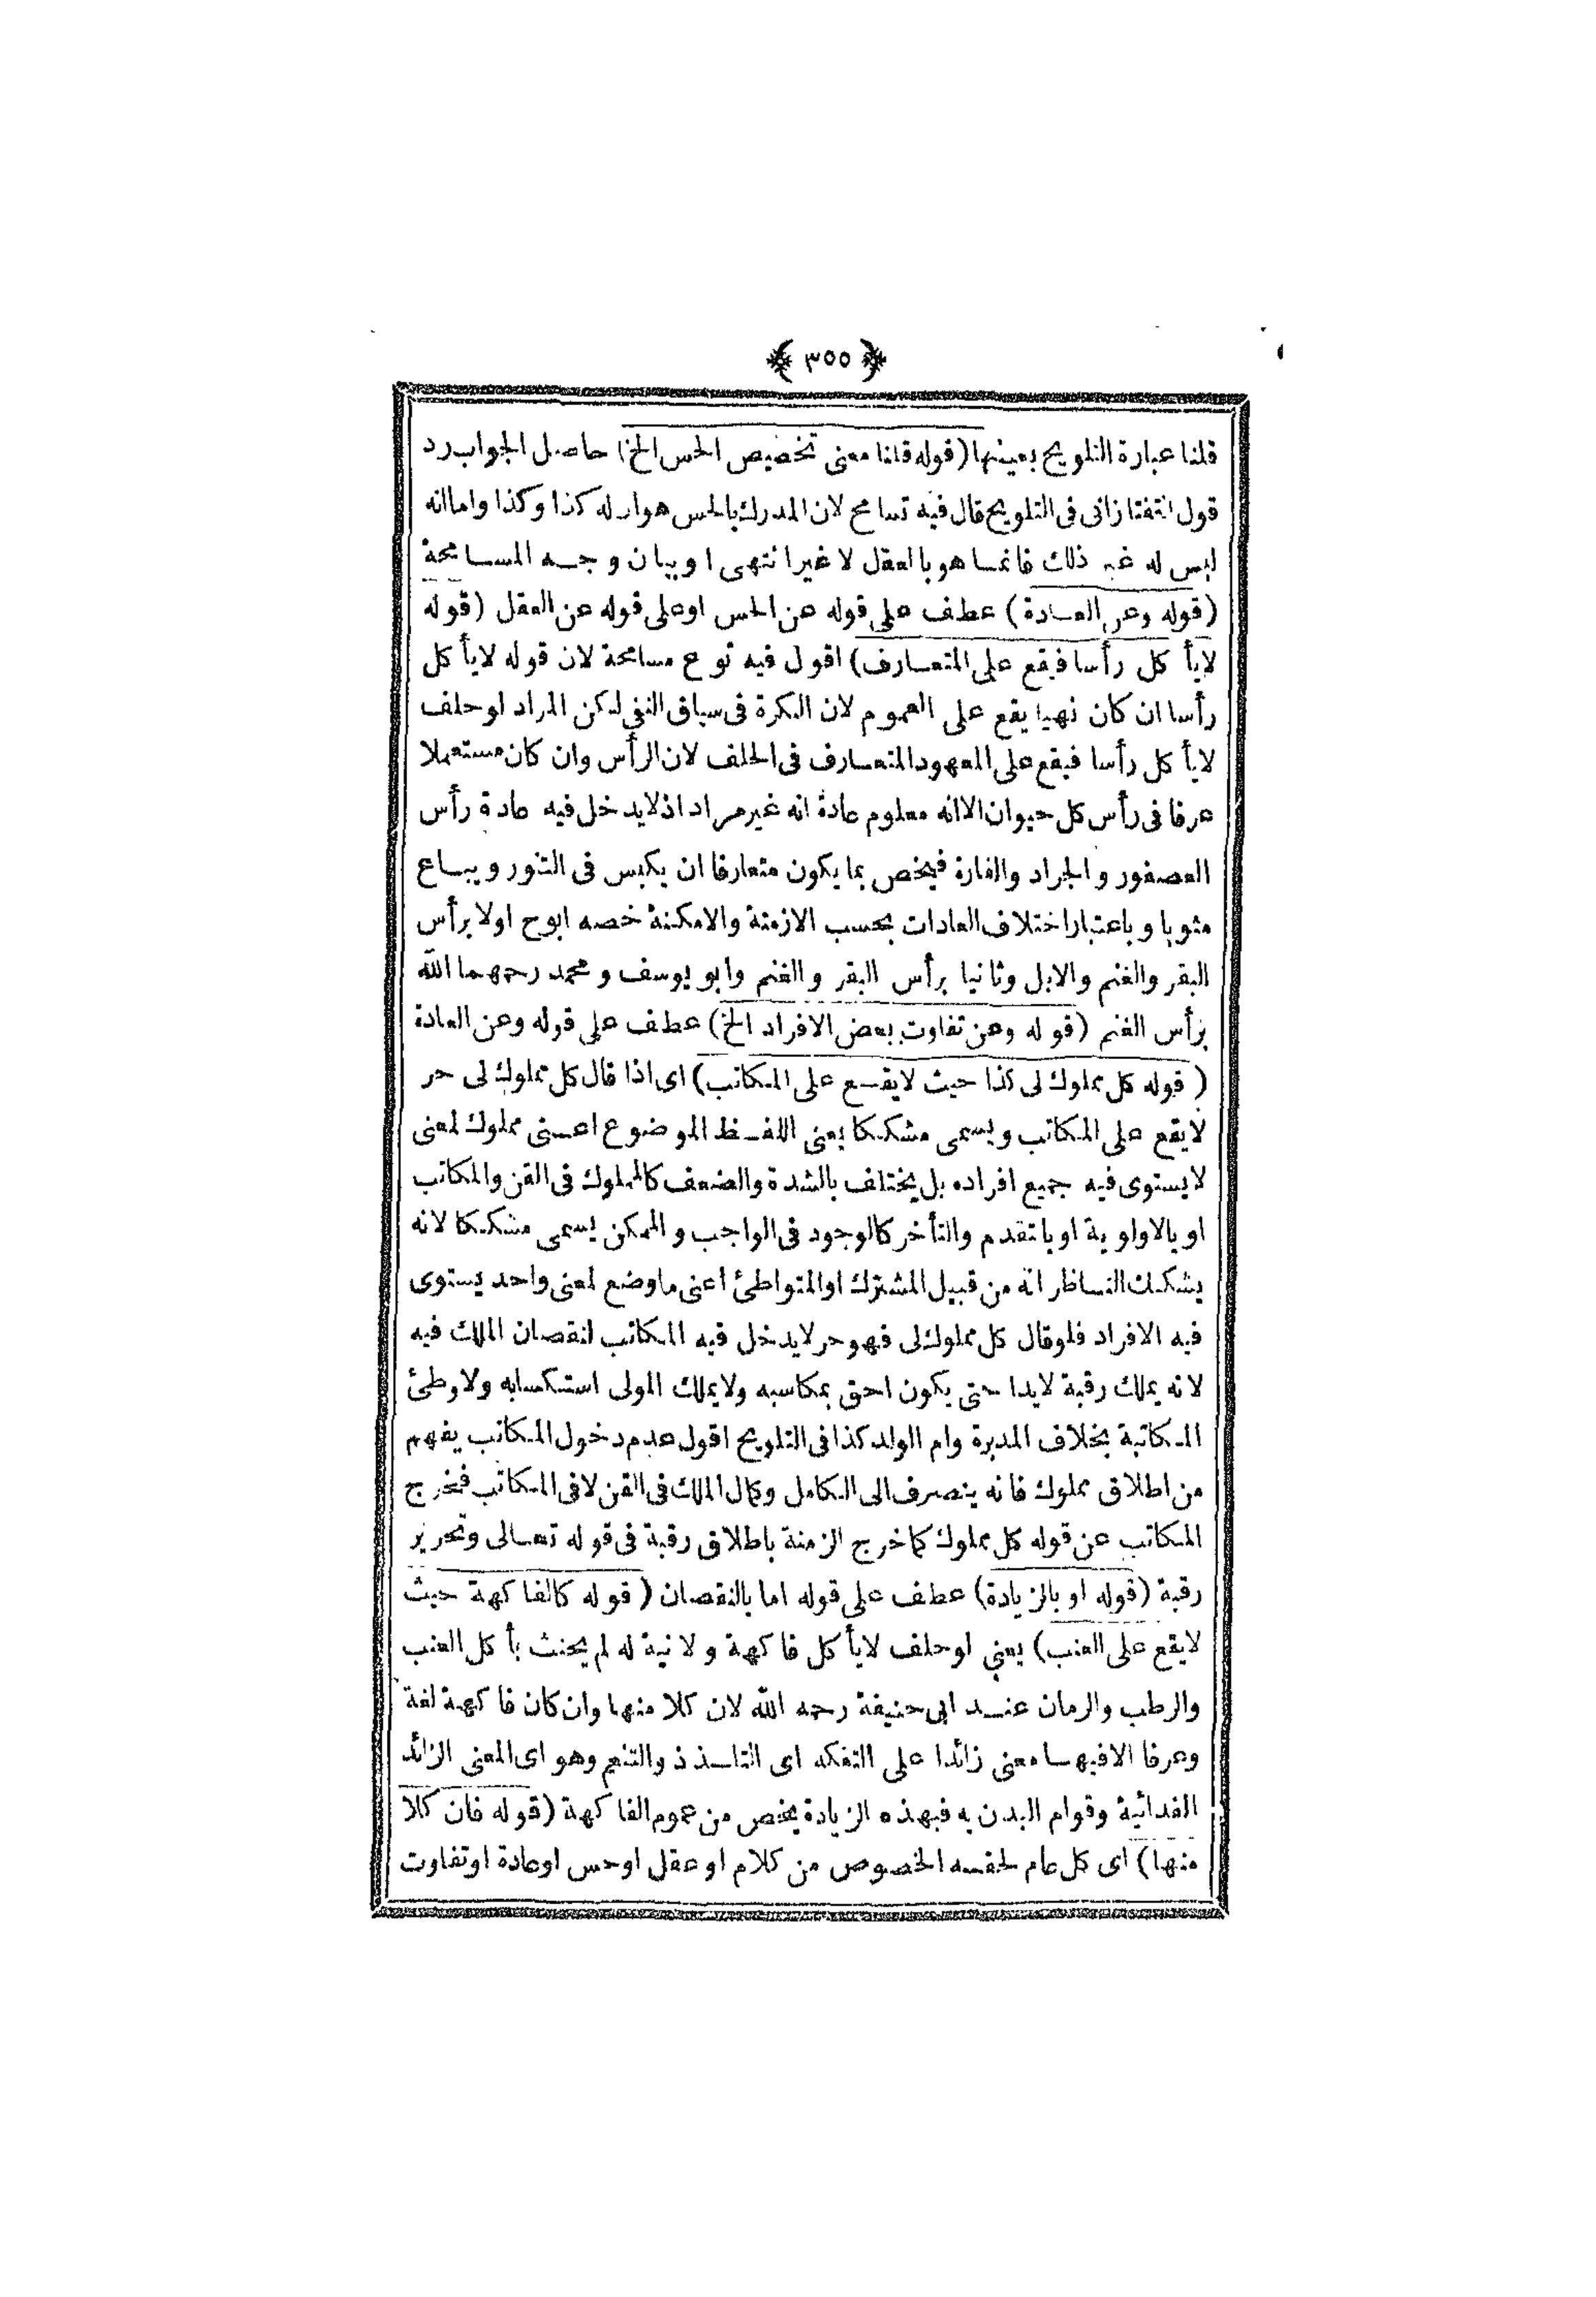 ﴿ ٣٥٥ ﴾
قلنا عبارة التلويح بعينها (قوله قلنا معنى تخصيص الحس الخ) حاصل الجواب رد
قول التفتازانى فى التلويح قال فيه تسامح لان المدرك بالحس هوان له كذا وكذا واما انه
ليس له غير ذلك فانمـا هو بالعقل لا غير انتهى او بيان وجـه المسـامحة
(قوله وعن العـادة) عطف على قوله عن الحس او على قوله عن العقل (قوله
لا يأكل رأسا فيقع على المتعـارف) اقول فيه نوع مسامحة لان قوله لا يأكل
رأسا ان كان نهيا يقع على العموم لان النكرة فى سياق النفى لكن المراد لو حلف
لا يأكل رأسا فيقع على المعهود المتعـارف فى الحلف لان الرأس وان كان مستعملا
عرفا فى رأس كل حيوان الا انه معلوم عادة انه غير مراد اذ لا يدخل فيه عادة رأس
العصفور والجراد والفارة فيخص بما يكون متعارفا ان يكبس فى التنور ويبـاع
مشويا وباعتبار اختلاف العادات بحسب الازمنة والامكنة خصه ابوح اولا برأس
البقر والغنم والابل وثانيا برأس البقر والغنم وابو يوسف ومحمد رحمهما الله
برأس الغنم (قوله وعن تفاوت بعض الافراد الخ) عطف على قوله وعن العادة
(قوله كل مملوك لى كذا حيث لا يقـع على المكاتب) اى اذا قال كل مملوك لى حر
لا يقع على المكاتب ويسمى مشككا يعنى اللفـظ الموضوع اعـنى مملوك لمعنى
لا يستوى فيه جميع افراده بل يختلف بالشدة والضعف كالمملوك فى القن والمكاتب
او بالاولوية او بالتقدم والتأخر كالوجود فى الواجب والممكن يسمى مشككا لانه
يشكك النـاظر انه من قبيل المشترك او المتواطئ اعنى ما وضع لمعنى واحد يستوى
فيه الافراد فلو قال كل مملوك لى فهو حر لا يدخل فيه المكاتب لنقصان الملك فيه
لانه يملك رقبة لا يدا حتى يكون احق بمكاسبه ولا يملك المولى استكسابه ولا وطئ
المكاتبة بخلاف المدبرة وام الولد كذا فى التلويح اقول عدم دخول المكاتب يفهم
من اطلاق مملوك فانه ينصرف الى الكامل وكمال الملك فى القن لا فى المكاتب فيخرج
المكاتب عن قوله كل مملوك كما خرج الزمنة باطلاق رقبة فى قوله تعـالى وتحرير
رقبة (قوله او بالزيادة) عطف على قوله اما بالنقصان (قوله كالفاكهة حيث
لا يقع على العنب) يعنى لو حلف لا يأكل فاكهة ولا نية له لم يحنث بأكل العنب
والرطب والرمان عنـد ابى حنيفة رحمه الله لان كلا منها وان كان فاكهة لغة
وعرفا الا فيهـا معنى زائدا على التفكه اى التلـذذ والتنعم وهو اى المعنى الزائد
الغدائية وقوام البدن به فبهذه الزيادة يخص من عموم الفاكهة (قوله فان كلا
منها) اى كل عام لحقـه الخصوص من كلام او عقل او حس او عادة او تفاوت